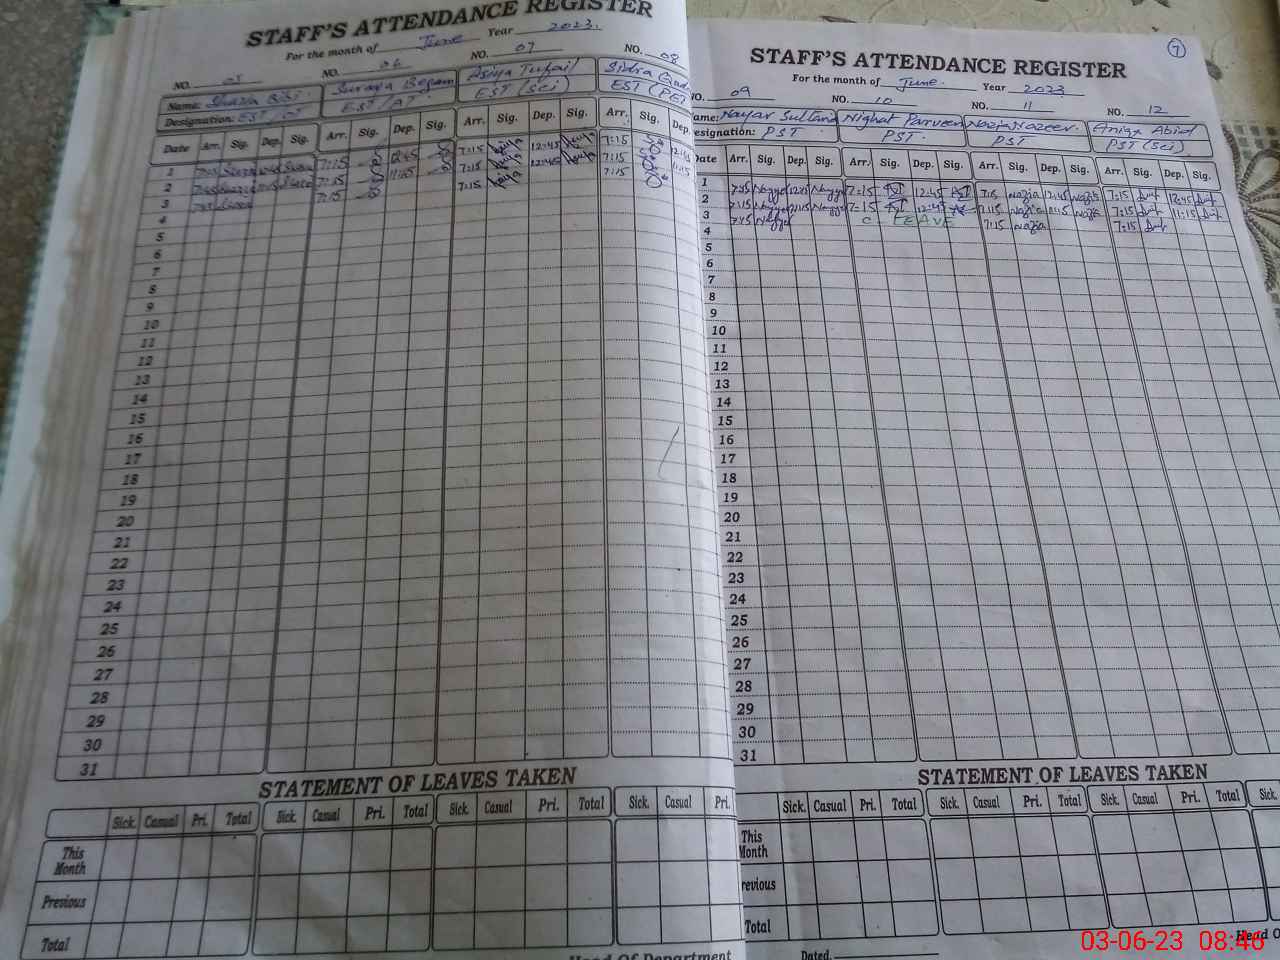 STAFF'S ATTENDANCE REGISTER
For the month of June Year 2023.
NO. 05 NO. 06 NO. 07 NO. 08
Name: Bibi. Suraya Begam Asiya Tufail Sidra
Designation: EST / EST/AT EST (Sci) EST (PET
Date Arr. Sig. Dep. Sig. Arr. Sig. Dep. Sig. Arr. Sig. Dep. Sig. Arr. Sig. Dep.
1 7:15 12:45 7:15 12:45 7:15
2 7:15 7:15 12:45 7:15
3 7:15 7:15 7:15
4
5
6
7
8
9
10
11
12
13
14
15
16
17
18
19
20
21
22
23
24
25
26
27
28
29
30
31
STATEMENT OF LEAVES TAKEN
Sick. Casual Pri. Total Sick. Casual Pri. Total Sick. Casual Pri. Total Sick. Casual Pri.
This Month
Previous
Total
Head Of Department
7
STAFF'S ATTENDANCE REGISTER
For the month of June. Year 2023
NO. 09 NO. 10 NO. 11 NO. 12
ame: Nayar Sultana Nighat Parveen Nazia Nazeer. Aniqa Abid
esignation: PST. PST. PST PST (Sci)
Date Arr. Sig. Dep. Sig. Arr. Sig. Dep. Sig. Arr. Sig. Dep. Sig. Arr. Sig. Dep. Sig.
1 7:15 12:45 7:15 12:45 7:15 Nazia 12:45 Nazia 7:15 12:45
2 7:15 11:15 7:15 12:45 7:15 Nazia 11:45 Nazia 7:15 11:15
3 7:15 C LEAVE 7:15 Nazia 7:15
4
5
6
7
8
9
10
11
12
13
14
15
16
17
18
19
20
21
22
23
24
25
26
27
28
29
30
31
STATEMENT OF LEAVES TAKEN
Sick. Casual Pri. Total Sick. Casual Pri. Total Sick. Casual Pri. Total Sick.
This
Month
revious
Total
Dated. Head O
03-06-23 08:46